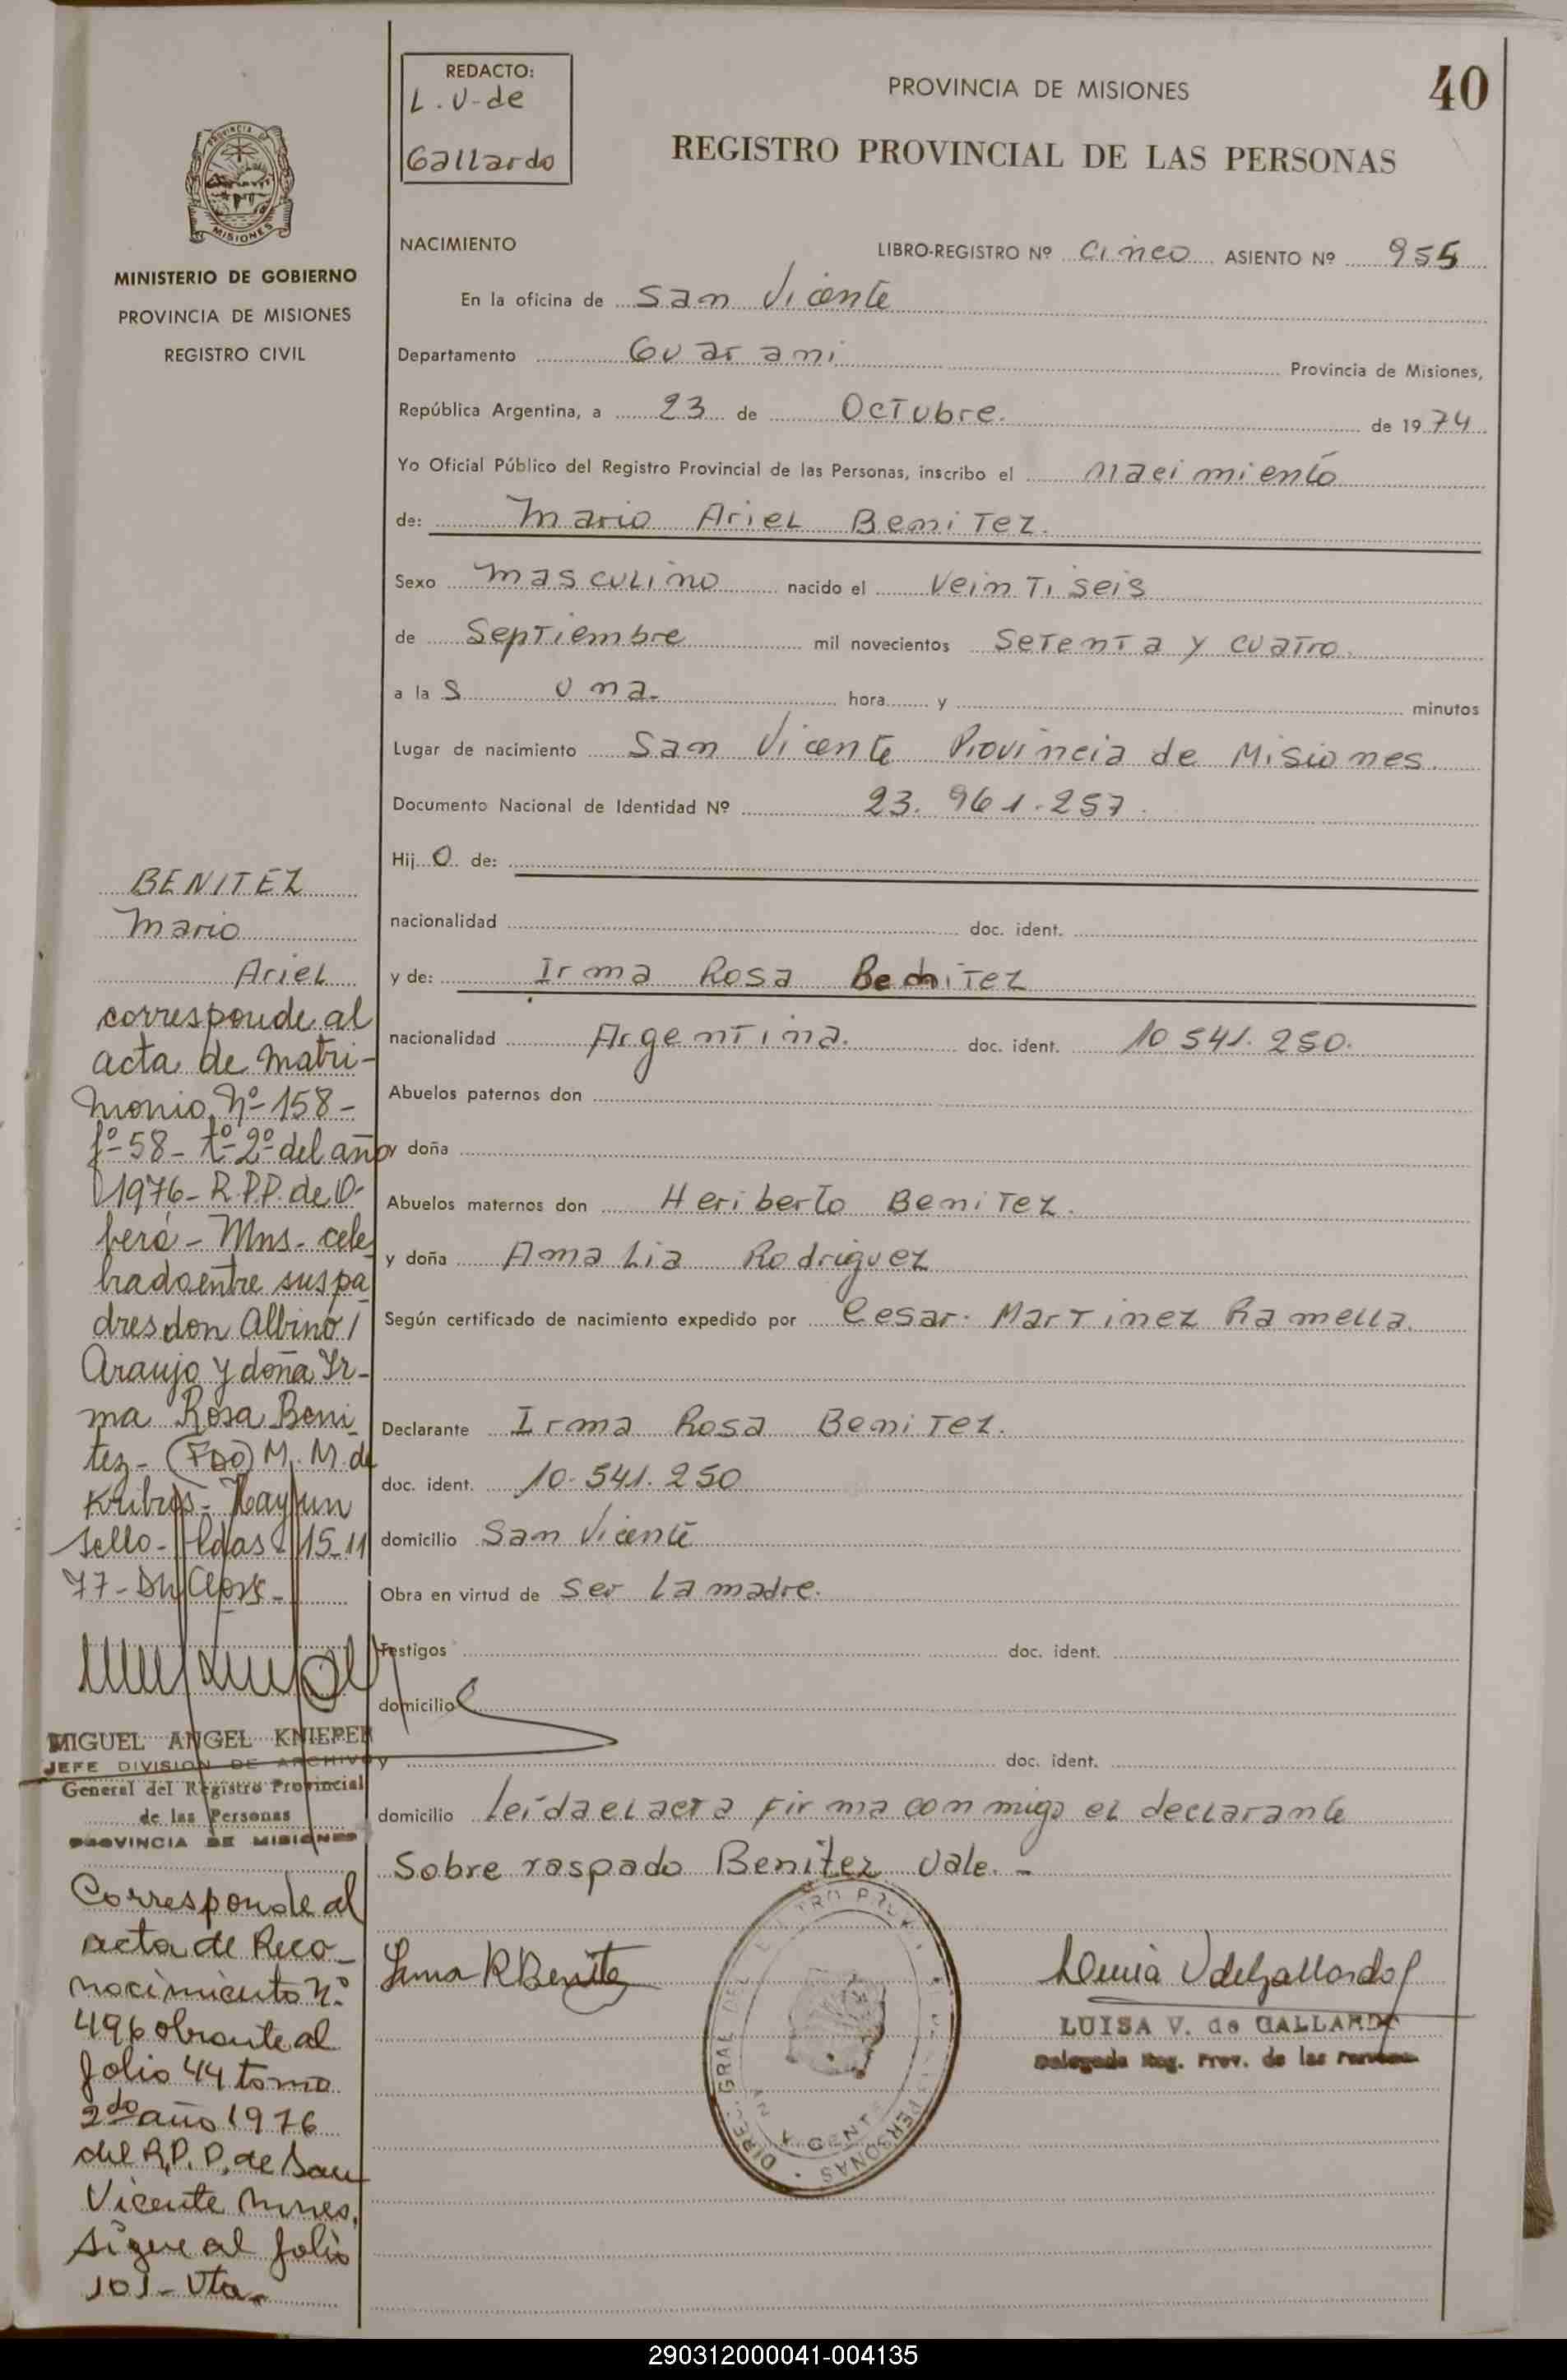 REDACTO:
L. V. de
Gallardo
PROVINCIA DE MISIONES
40
REGISTRO PROVINCIAL DE LAS PERSONAS
MISIONES
MINISTERIO DE GOBIERNO
PROVINCIA DE MISIONES
REGISTRO CIVIL
NACIMIENTO
LIBRO-REGISTRO Nº Cinco ASIENTO Nº 955
En la oficina de San Vicente
Departamento Guarani Provincia de Misiones,
República Argentina, a 23 de Octubre. de 1974
Yo Oficial Público del Registro Provincial de las Personas, inscribo el nacimiento
de: Mario Ariel Benitez.
Sexo masculino nacido el veintiseis
de Septiembre mil novecientos setenta y cuatro.
a las una. hora y minutos
Lugar de nacimiento San Vicente Provincia de Misiones.
Documento Nacional de Identidad Nº 23.961.257.
Hijo de:
nacionalidad doc. ident.
y de: Irma Rosa Benitez
nacionalidad Argentina. doc. ident. 10 541.250.
Abuelos paternos don
y doña
Abuelos maternos don Heriberto Benitez.
y doña Amalia Rodriguez
Según certificado de nacimiento expedido por Cesar. Martinez Ramella.
Declarante Irma Rosa Benitez.
doc. ident. 10.541.250
domicilio San Vicente
Obra en virtud de ser la madre.
Testigos doc. ident.
domicilio
y doc. ident.
domicilio leída el acta firma conmigo el declarante
Sobre raspado Benitez Vale.-
Irma R Benitez
LUISA V. de GALLARDO
Delegada Reg. Prov. de las Personas
BENITEZ
Mario
Ariel
corresponde al
acta de matri-
monio, Nº-158-
fº-58- tº-2º-del año
1976- R.P.P. de O-
berá- Mns- cele
brado entre sus pa
dres don Albino
Araujo y doña Ir-
ma Rosa Beni
tez- (FDO) M. M. de
Hay un
sello- Pdas- 15-11
77-
MIGUEL ANGEL KNIEPER
JEFE DIVISION DE ARCHIVO
General del Registro Provincial
de las Personas
PROVINCIA DE MISIONES
Corresponde al
acta de Reco-
nocimiento Nº
496 obrante al
folio 44 tomo
2do año 1976
del R.P.P. de San
Vicente Mnes.
sigue al folio
101- Vta-
290312000041-004135